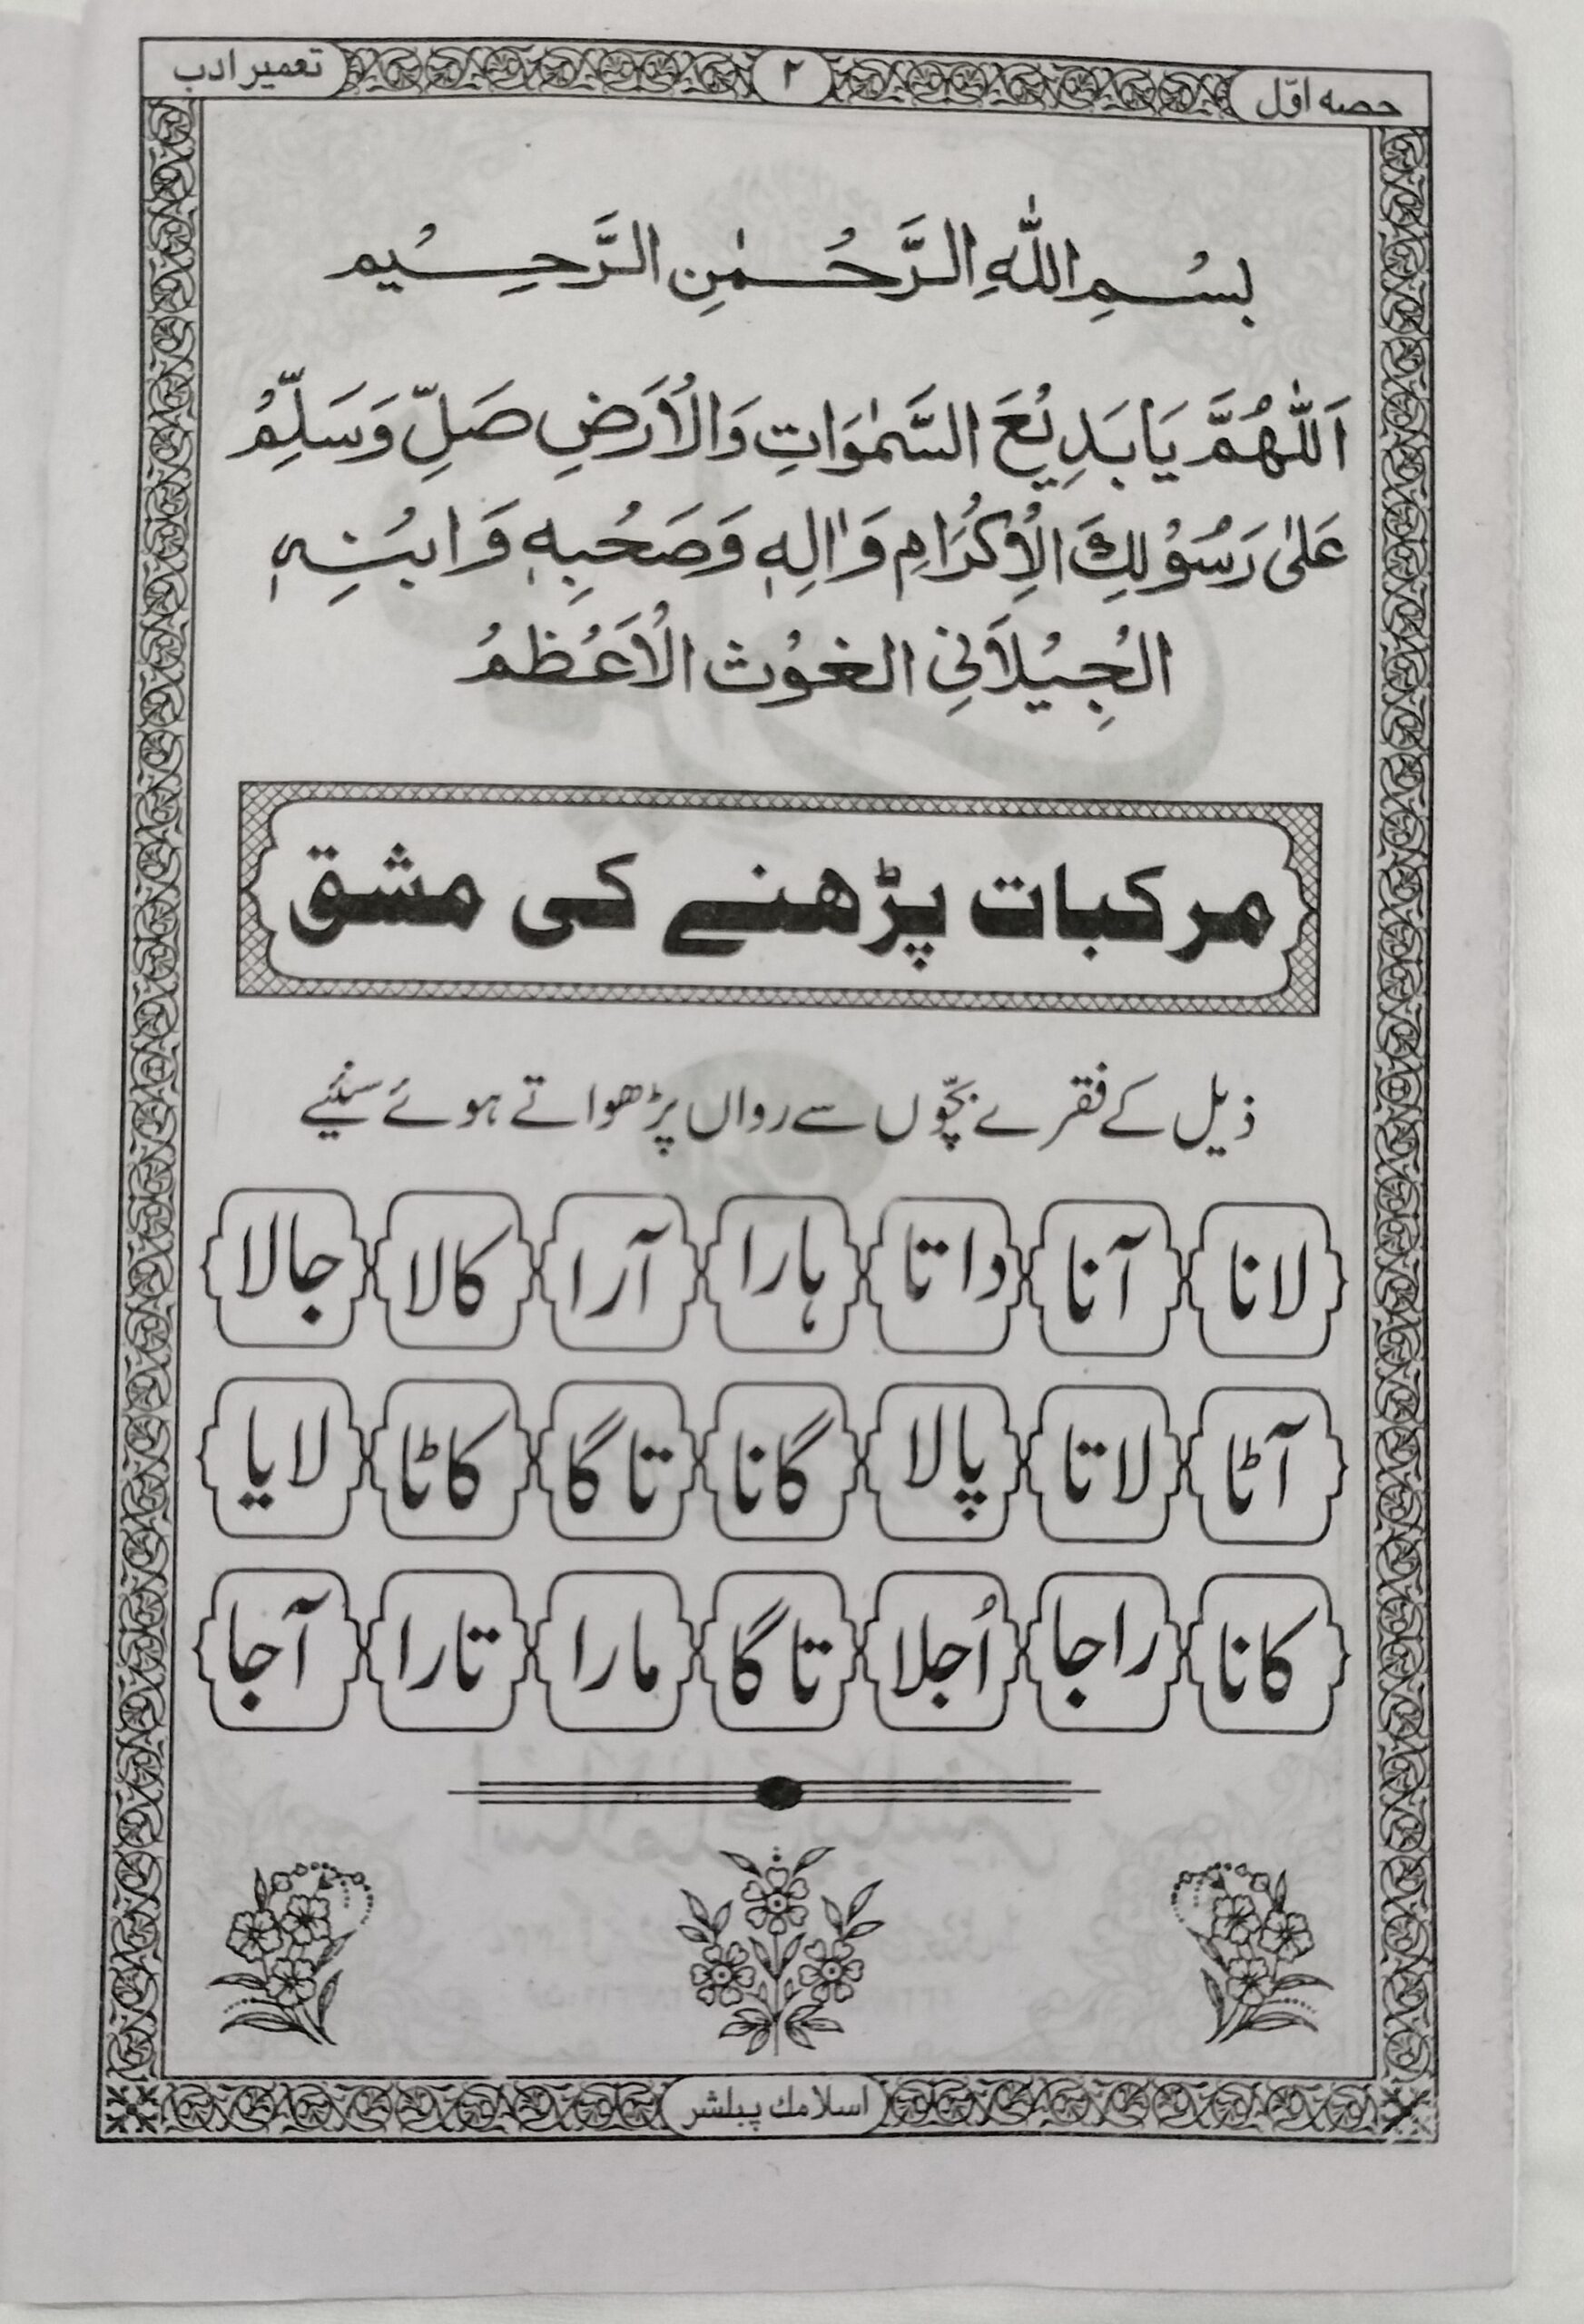 حصہ اوّل ۲ تعمیر ادب
بِسْمِ اللّٰهِ الرَّحْمٰنِ الرَّحِيْمِ
اَللّٰهُمَّ يَا بَدِيْعَ السَّمٰوَاتِ وَالْاَرْضِ صَلِّ وَسَلِّمْ
عَلٰى رَسُوْلِكَ الْاِكْرَامِ وَاٰلِهٖ وَصَحْبِهٖ وَابْنِهٖ
الْجِيْلَانِي الغَوْث الْاَعْظَمْ
مرکبات پڑھنے کی مشق
ذیل کے فقرے بچّوں سے رواں پڑھواتے ہوئے سنئیے
لانا آنا داتا ہارا آرا کالا جالا
آٹا لاتا پالا گانا تاگا کاٹا لایا
کانا راجا اُجلا تاگا مارا تارا آجا
اسلامک پبلشر